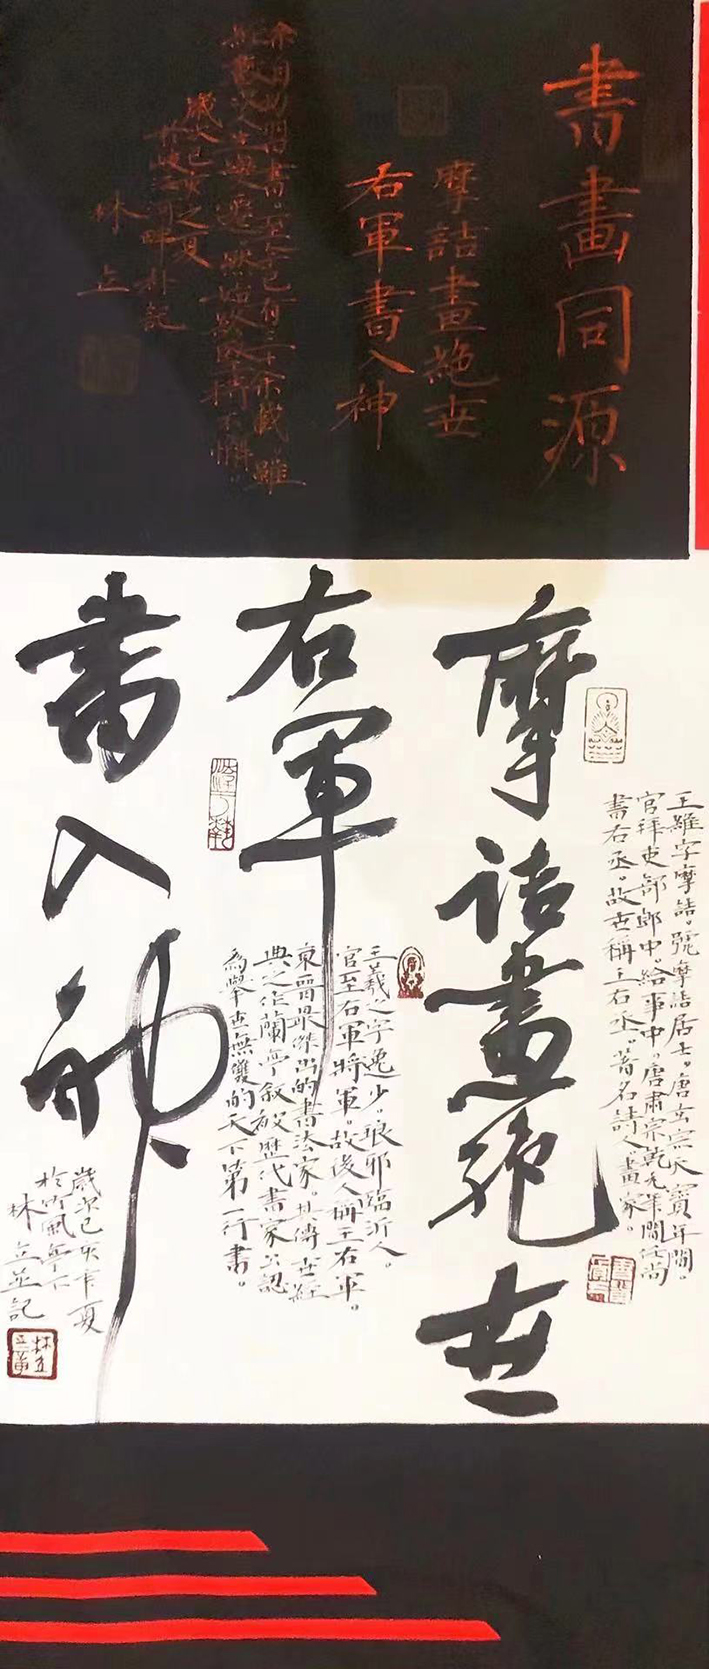 書畫同源
摩詰畫絶世
右軍書入神
余自幼習書。至今已有三十余載。雖
歲次己亥之夏
林立
摩詰畫絶世
右軍
書入神
王維字摩詰。號摩詰居士。唐玄宗天寶年間。
官拜吏部郎中。給事中。唐肅宗乾元年間任尚
書右丞。故世稱王右丞。著名詩人畫家。
王羲之字逸少。琅邪臨沂人。
官至右軍將軍。故後人稱王右軍。
東晉最傑出的書法家。其傳世經
典之作蘭亭敘被歷代書家公認
為舉世無雙的天下第一行書。
歲次己亥年夏
於听風亭下
林立並記